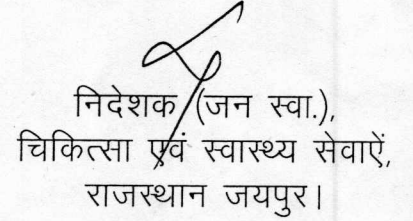 निदेशक (जन स्वा.),
चिकित्सा एवं स्वास्थ्य सेवाऐं,
राजस्थान जयपुर।